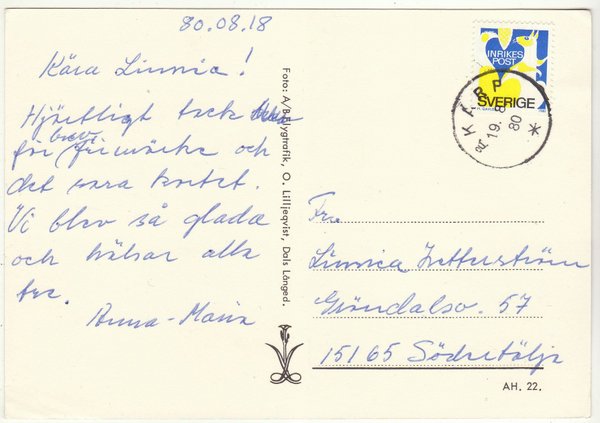 80.08.18
Kära Linnéa!
Hjärtligt tack
för brev frimärke och
det rara kortet.
Vi blev så glada
och hälsar alla
tre.
Anna-Maria
Foto: A/B Flygtrafik, O. Lilljeqvist, Dals Långed.
INRIKES
POST
SVERIGE
KARP
19. 8
80
Fru
Linnéa Zetterström
Gröndalsv. 57
151 65 Södertälje
AH. 22.